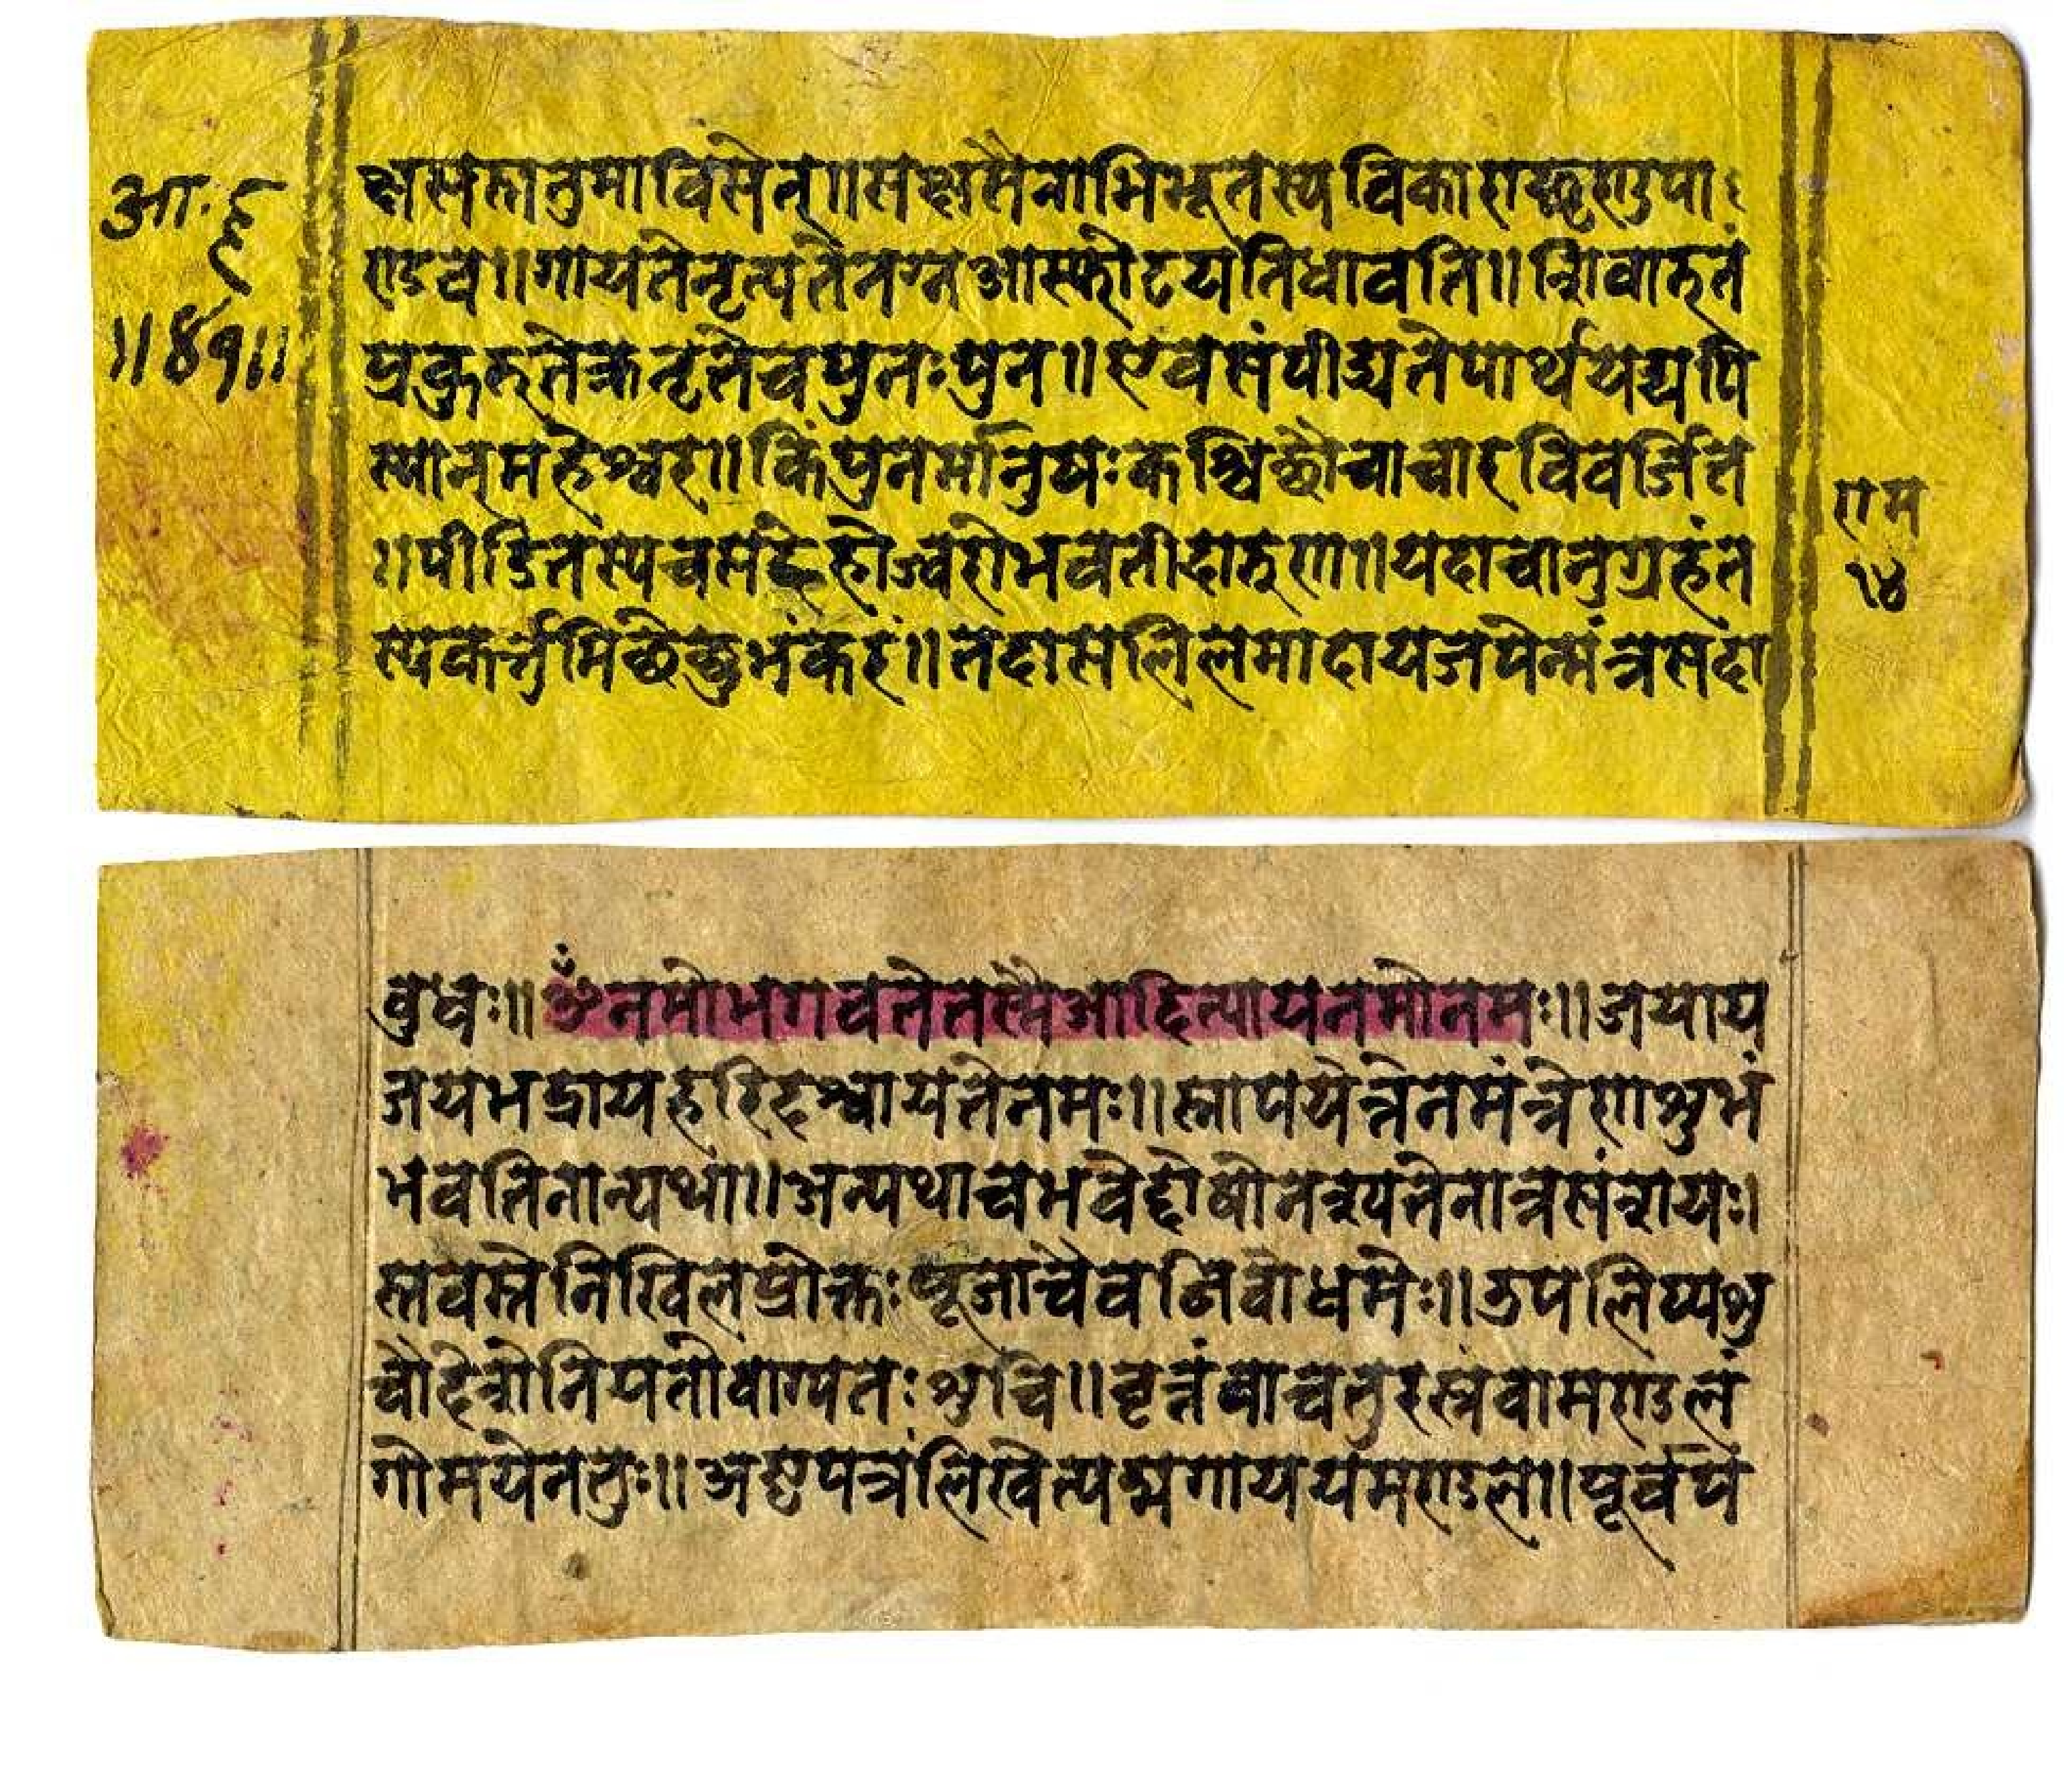 आ.हृ
॥४१॥
क्षसत्तानुमाविसेत्॥सक्षसैत्राभिभूतस्यविकाराछृणुपा
ण्डव॥गायतेनृत्यतेनग्नआस्फोटयतिधावति॥शिवारुतं
प्रकुरुतेक्रन्दतेचपुनःपुन॥एवसंपीद्यतेपार्थयद्यपि
स्यान्महेश्वर॥किंपुनर्मानुषःकश्चिछौचाचारविवर्जित
॥पीडितस्यचसंदेहोज्वरोभवतीदारुण॥यदाचानुग्रहंत
स्यकर्त्तुमिछेछुभंकरं॥तदासलिलमादायजपेन्मंत्रसदा
राम
४
वुधः॥ॐनमोभगवतेतस्मैआदित्यायनमोनमः॥जयाय
जयभद्रायहरिदश्वायतेनमः॥स्नापयेत्तेनमंत्रेणशुभं
भवतिनान्यथा॥अन्यथाचभवेद्दोषोनश्यतेनात्रसंशयः।
स्तवस्तेनिखिलप्रोक्तःपूजाचैवनिवोधमेः॥उपलिप्यशु
चौदेशेनियतोवाग्यतःशुचि॥वृत्तंवाचतुरस्त्रंवामण्डलं
गोमयेनतुः॥अष्टपत्रंलिखेत्पद्मगाययंमण्डल॥पूर्वपं